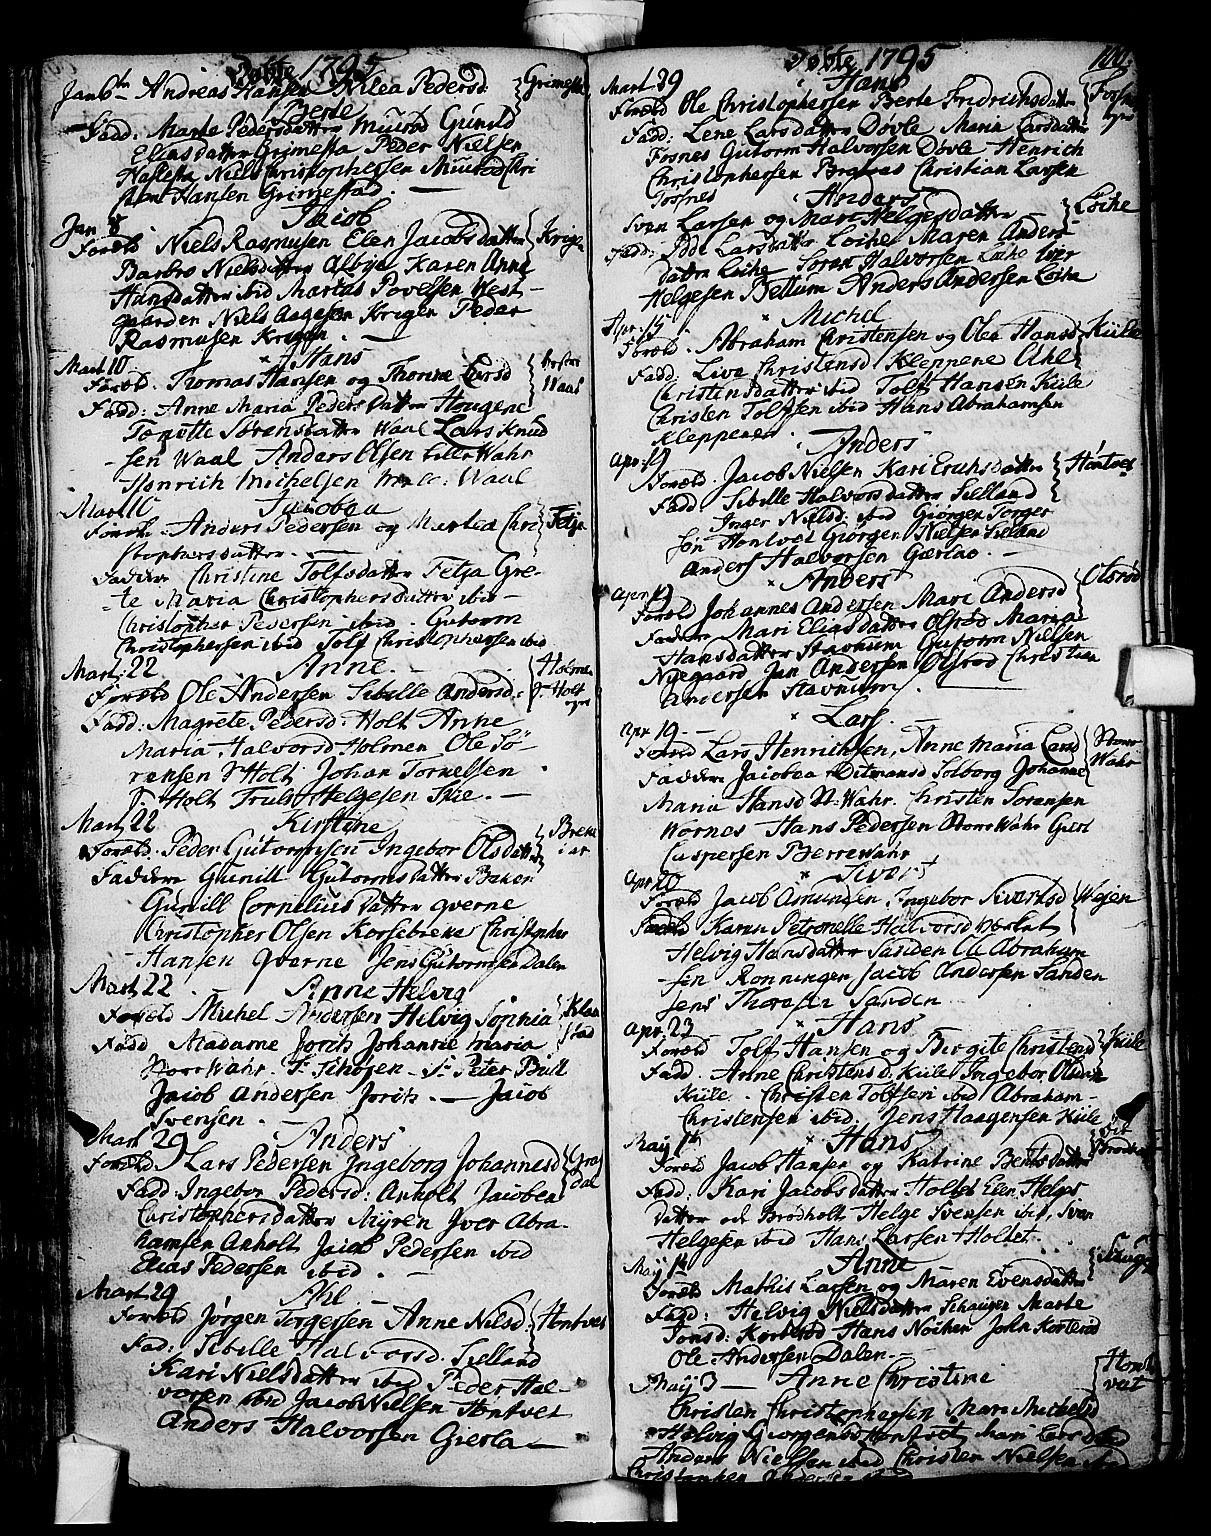 Døbte 1795
Jan 6te Andreas Hansen Nilea Pedersd: Grimesta
Berte
Fadd: Marte Pedersdatter Muurød Gunild
Eliasdatter Grimesta Peder Nielsen
Haslesta Niels Christophersen Muurød Chri
Hansen Grimestad. —
Jan 8 Jacob
Foreld Niels Rasmusen Elen Jacobsdatter Krigen
Barbro Nielsdatter Karen Anne
Hansdatter ibid Marias Povelsen West-
gaarden Niels Aagesen Krigen Peder
Rasmusen Krigen. —
Mart 10 Hans
Foreld. Thomas Hansen og Thonne Larsd Waal
Fadd: Anne Maria Peders datter Hougene
Tonette Sørensdatter Waal Lars Knud
sen Waal Anders Olsen Lille Wahr
Henrich Michelsen Waal
Mart 16 Jacobea
Foreld. Anders Pedersen og Martea Chri Fetja
stophersdatter. —
Faddere Christine Tolfsdatter Fetja Gre-
te Maria Christophersdatter ibid —
Christopher Pedersen ibid. Gutorm
Christophersen ibid Tolf Christophersen ibid
Mart: 22 Anne. Holmen
Foreld Ole Andersen Sibelle Andersd: Holt
Fadd: Magrete Pedersd: Holt Anne
Maria Halvorsd Holmen Ole Sø-
rensen Holt Johan Torkelsen
Holt Truls Helgesen Skie. —
Mart 22 Kirstine Breke
Foreld. Peder Gutormsen Ingebor Olsdatter
Faddere Gunill Gutormsdatter
Gunill Cornelius datter Qverne
Christopher Olsen Korsebreke Christopher
Hansen Qverne Jens Gutormsen Dalen
Mart 22 Anne Helvig
Foreld Michel Andersen Helvig Sophia Klaa
Fadd Madame Jorits Johanne Maria stad
Norr Wahr. Sr Schøjen — Sr Peter Bull
Jacob Andersen Jorits. — Jacob
Svensen. —
Mart 29 Anders
Foreld. Lars Pedersen Ingeborg Johannesd Grø
Fadd. Ingebor Pedersd: Anholt Jacobea dal
Christophersdatter Myren Iver Abra-
hamsen Anholt Jacob Pedersen ibid
Elias Pedersen ibid. —
Mart 29
Foreld Jørgen Torgersen Anne Nilsd: Hontvet
Fad: Sibille Halvorsd. Sielland
Kari Nielsdatter ibid Peder Hal-
vorsen ibid Jacob Nielsen Hontvet
Anders Halvorsen Gierla —
Døbte 1795 100.
Mart 29 Hans
Foreld Ole Christophersen Berte Fridrichsdatter Fosnes
Fadd: Lene Larsdatter Døvle Maria Larsdatter
Fosnes Gutorm Halvorsen Døvle Henrich
Christophersen Christian Larsen
Fosnes Anders
Sven Larsen og Mari Helgesdatter Loike
Fadd: Larsdatter Loike Maren Anders
datter Loike Søren Halvorsen Loike Iver
Helgesen Bellum Anders Andersen Loike
Apr. 15 Michel
Foreld. Abraham Christensen og Olea Hansd Kiile
Fadd. Live Christensd Kleppene
Christensdatter ibid Tolf Hansen Kiile
Christen Tolfsen ibid Hans Abrahamsen
Kleppene.
Apr: 19 Anders
Foreld. Jacob Nielsen Kari Erichsdatter Hontvet
Fadd Sibille Halvorsdatter Sielland
Inger Nielsd ibid Giørgen Torger
sen Hontvet Giørgen Nielsen Sieland
Anders Halvorsen Gierlao. —
Apr: 19 Anders Olsrød
Foreld Johannes Andersen Mari Andersd
Faddere Mari Eliasdatter Olsrød Maria
Hansdatter Stavnum Gutorm Nielsen
Nyegaard Jan Andersen Olsrød Christian
Andersen Stavnum. —
Apr 19 — Lars.
Foreld Lars Henrichsen, Anne Maria Larsd Store
Faddere Jacobea Ditmansd Solborg Johanne Wahr
Maria Hansd N: Wahr. Christen Sørensen
Wornes Hans Pedersen Store Wahr Giert
Caspersen Bierrewahr
Apr 20 Siver
Foreld Jacob Asmunden, Ingebor Siversd Wejen
Fadd Karen Petronelle Halvorsd
Helvig Hansdatter Sanden Abraham
sen Rønningen Jacob Andersen Sanden
Jens Thoresen Sanden
Apr. 23 Hans
Foreld Tolf Hansen og Birgite Christensd Kiile
Fadd. Anne Christensd. Kiile Ingebor Olsdatter
Kiile. Christen Tolfsen ibid Abraham-
Christensen ibid. Jens Haagensen Kiile
May 1te Hans
Foreld Jacob Hansen og Katrine Berthsdatter
Fadd: Kari Jacobsdatter Holtet Elen Helges
datter Brødholt Helge Svensen ibid, Sven
Helgesen ibid Hans Larsen Holtet.
May 1te Anne
Foreld Mathis Larsen og Maren Evensdatter
Fadd: Helvig Nielsdatter Schaugen Marte
Jonsd: Korterød Hans John Korterød
Ole Andersen Dalen —
May 3 — Anne Christine Hont
Christen Christophersen Mari Michelsd vet
Helvig Giorgensd Hontvet Mari Larsd
Anders Nielsen ibid Christen Nielsen ibid
Christopher Andersen